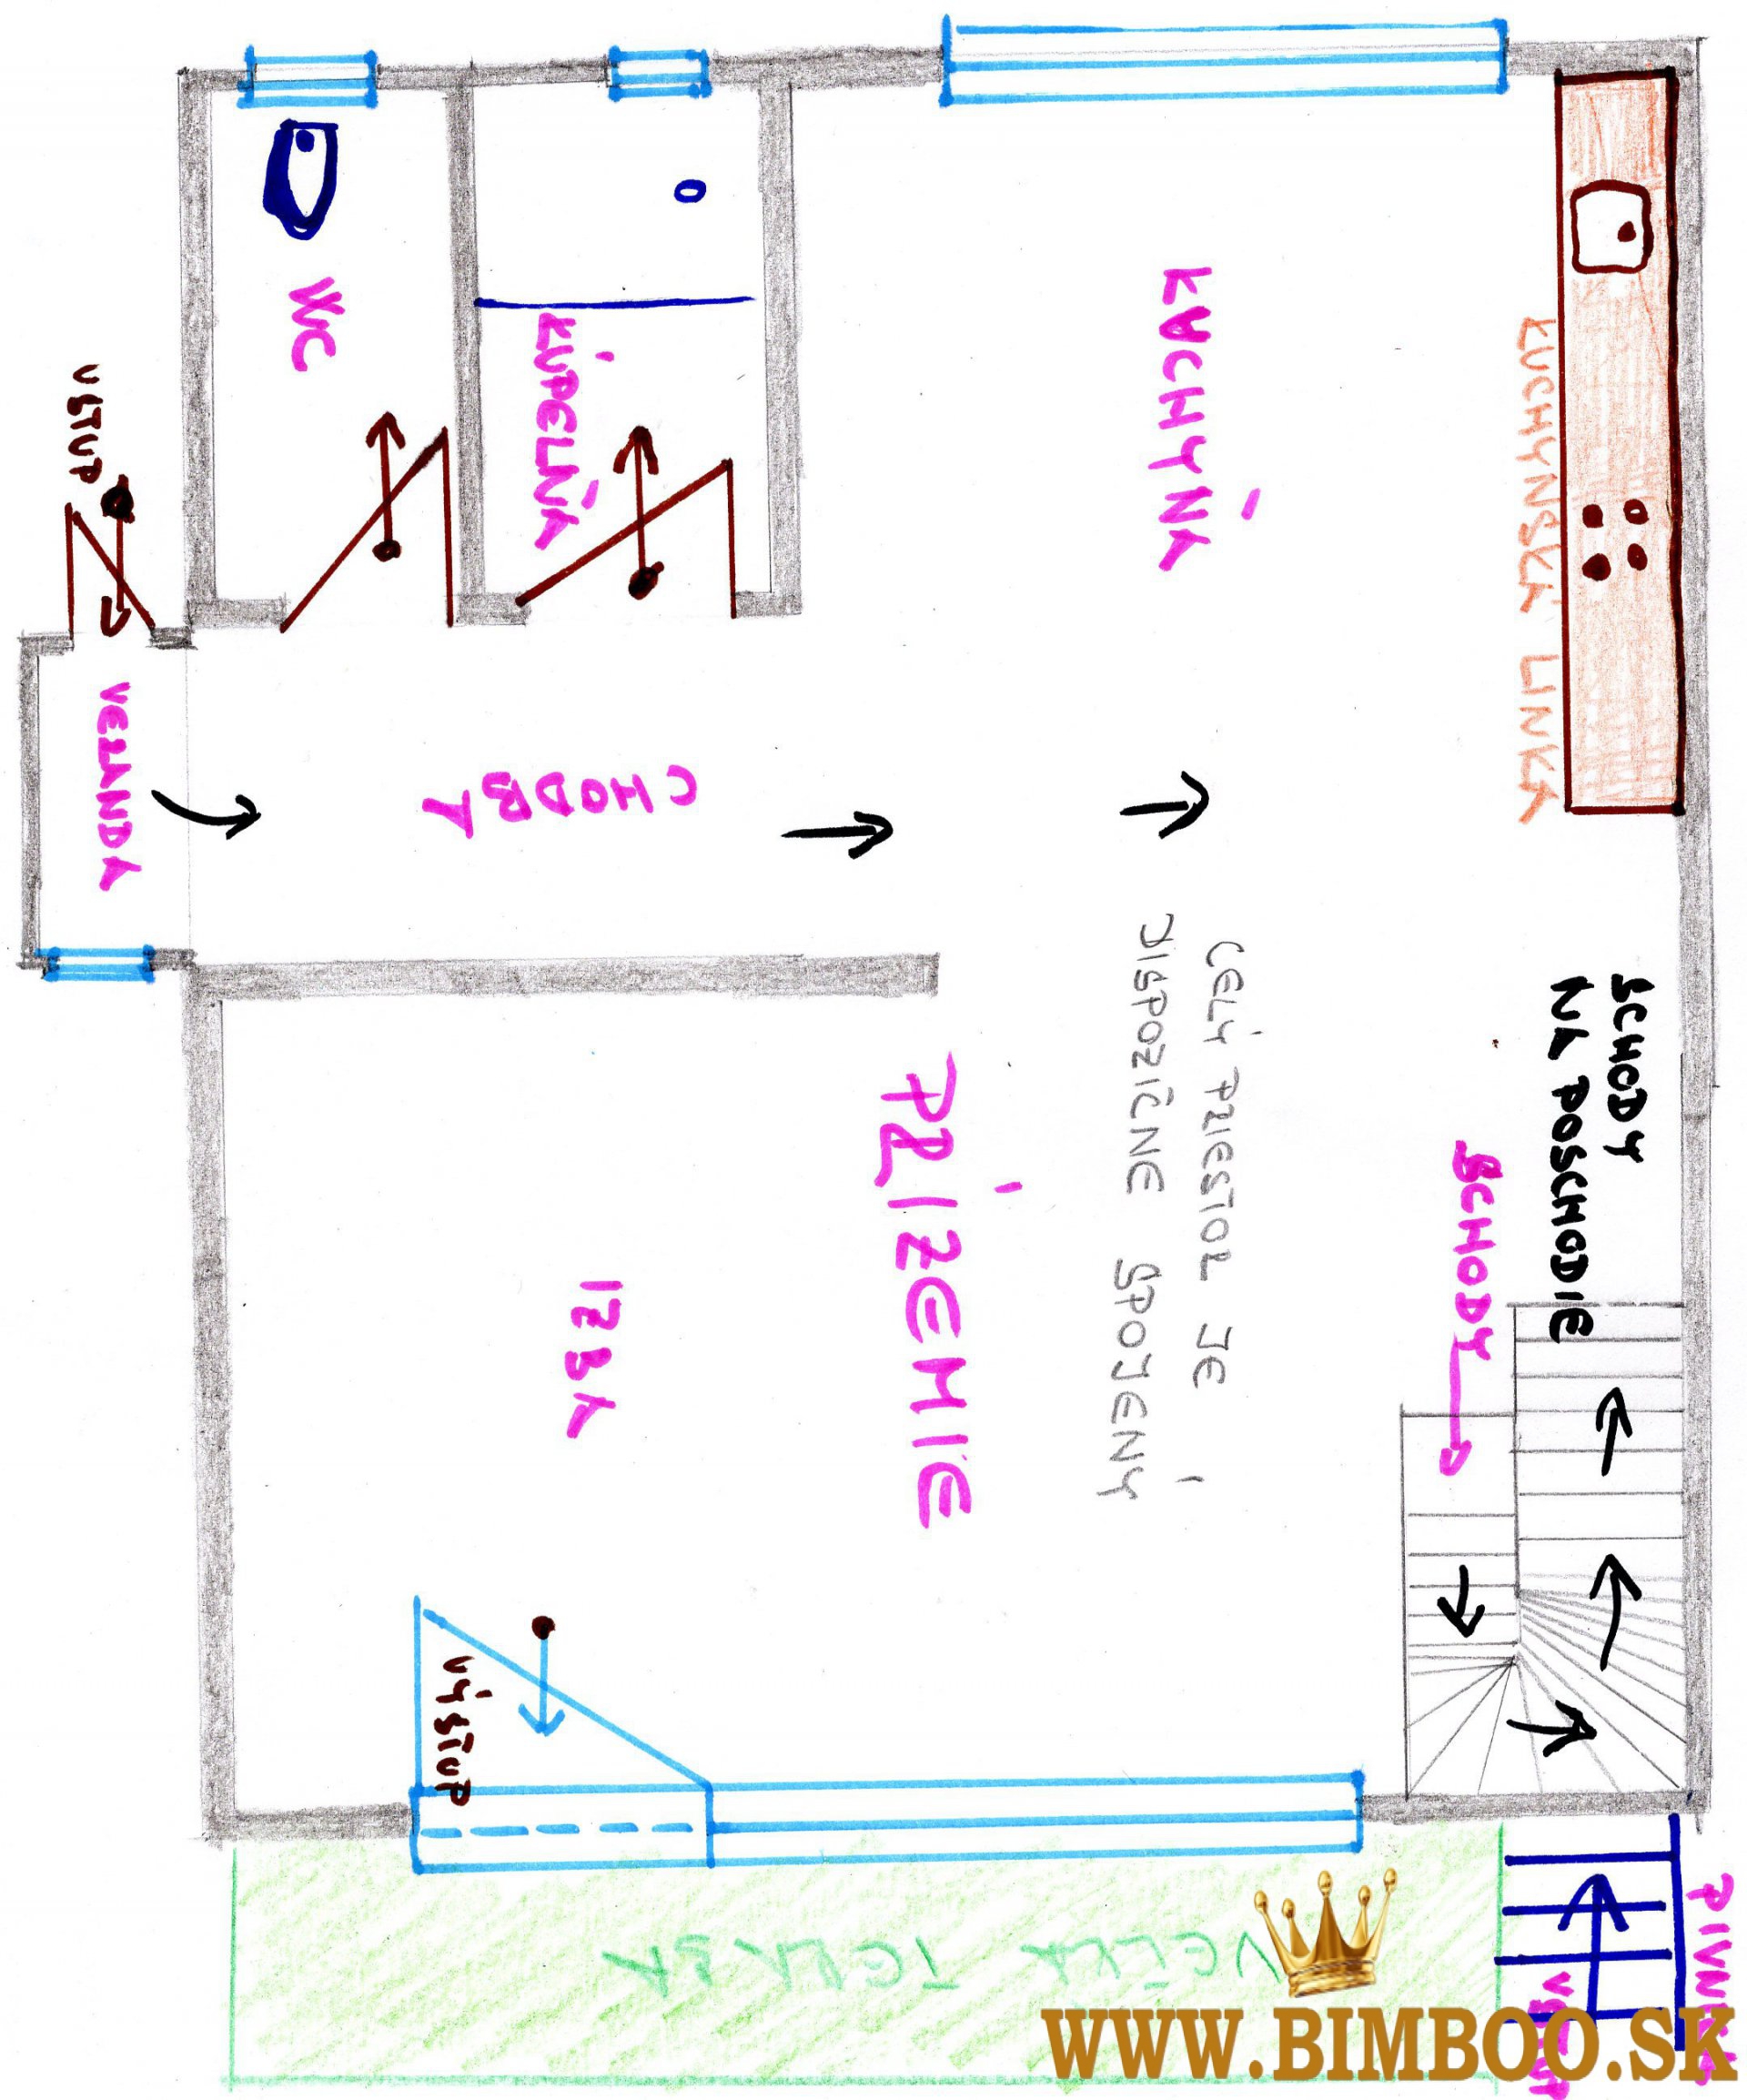 WC
KÚPEĽŇA
KUCHYŇA
KUCHYNSKÁ LINKA
VSTUP
VERANDA
CHODBA
CELÝ PRIESTOR JE
DISPOZIČNE SPOJENÝ
SCHODY
NA POSCHODIE
SCHODY
PRÍZEMIE
IZBA
VÝSTUP
VEĽKÁ TERASA
WWW.BIMBOO.SK